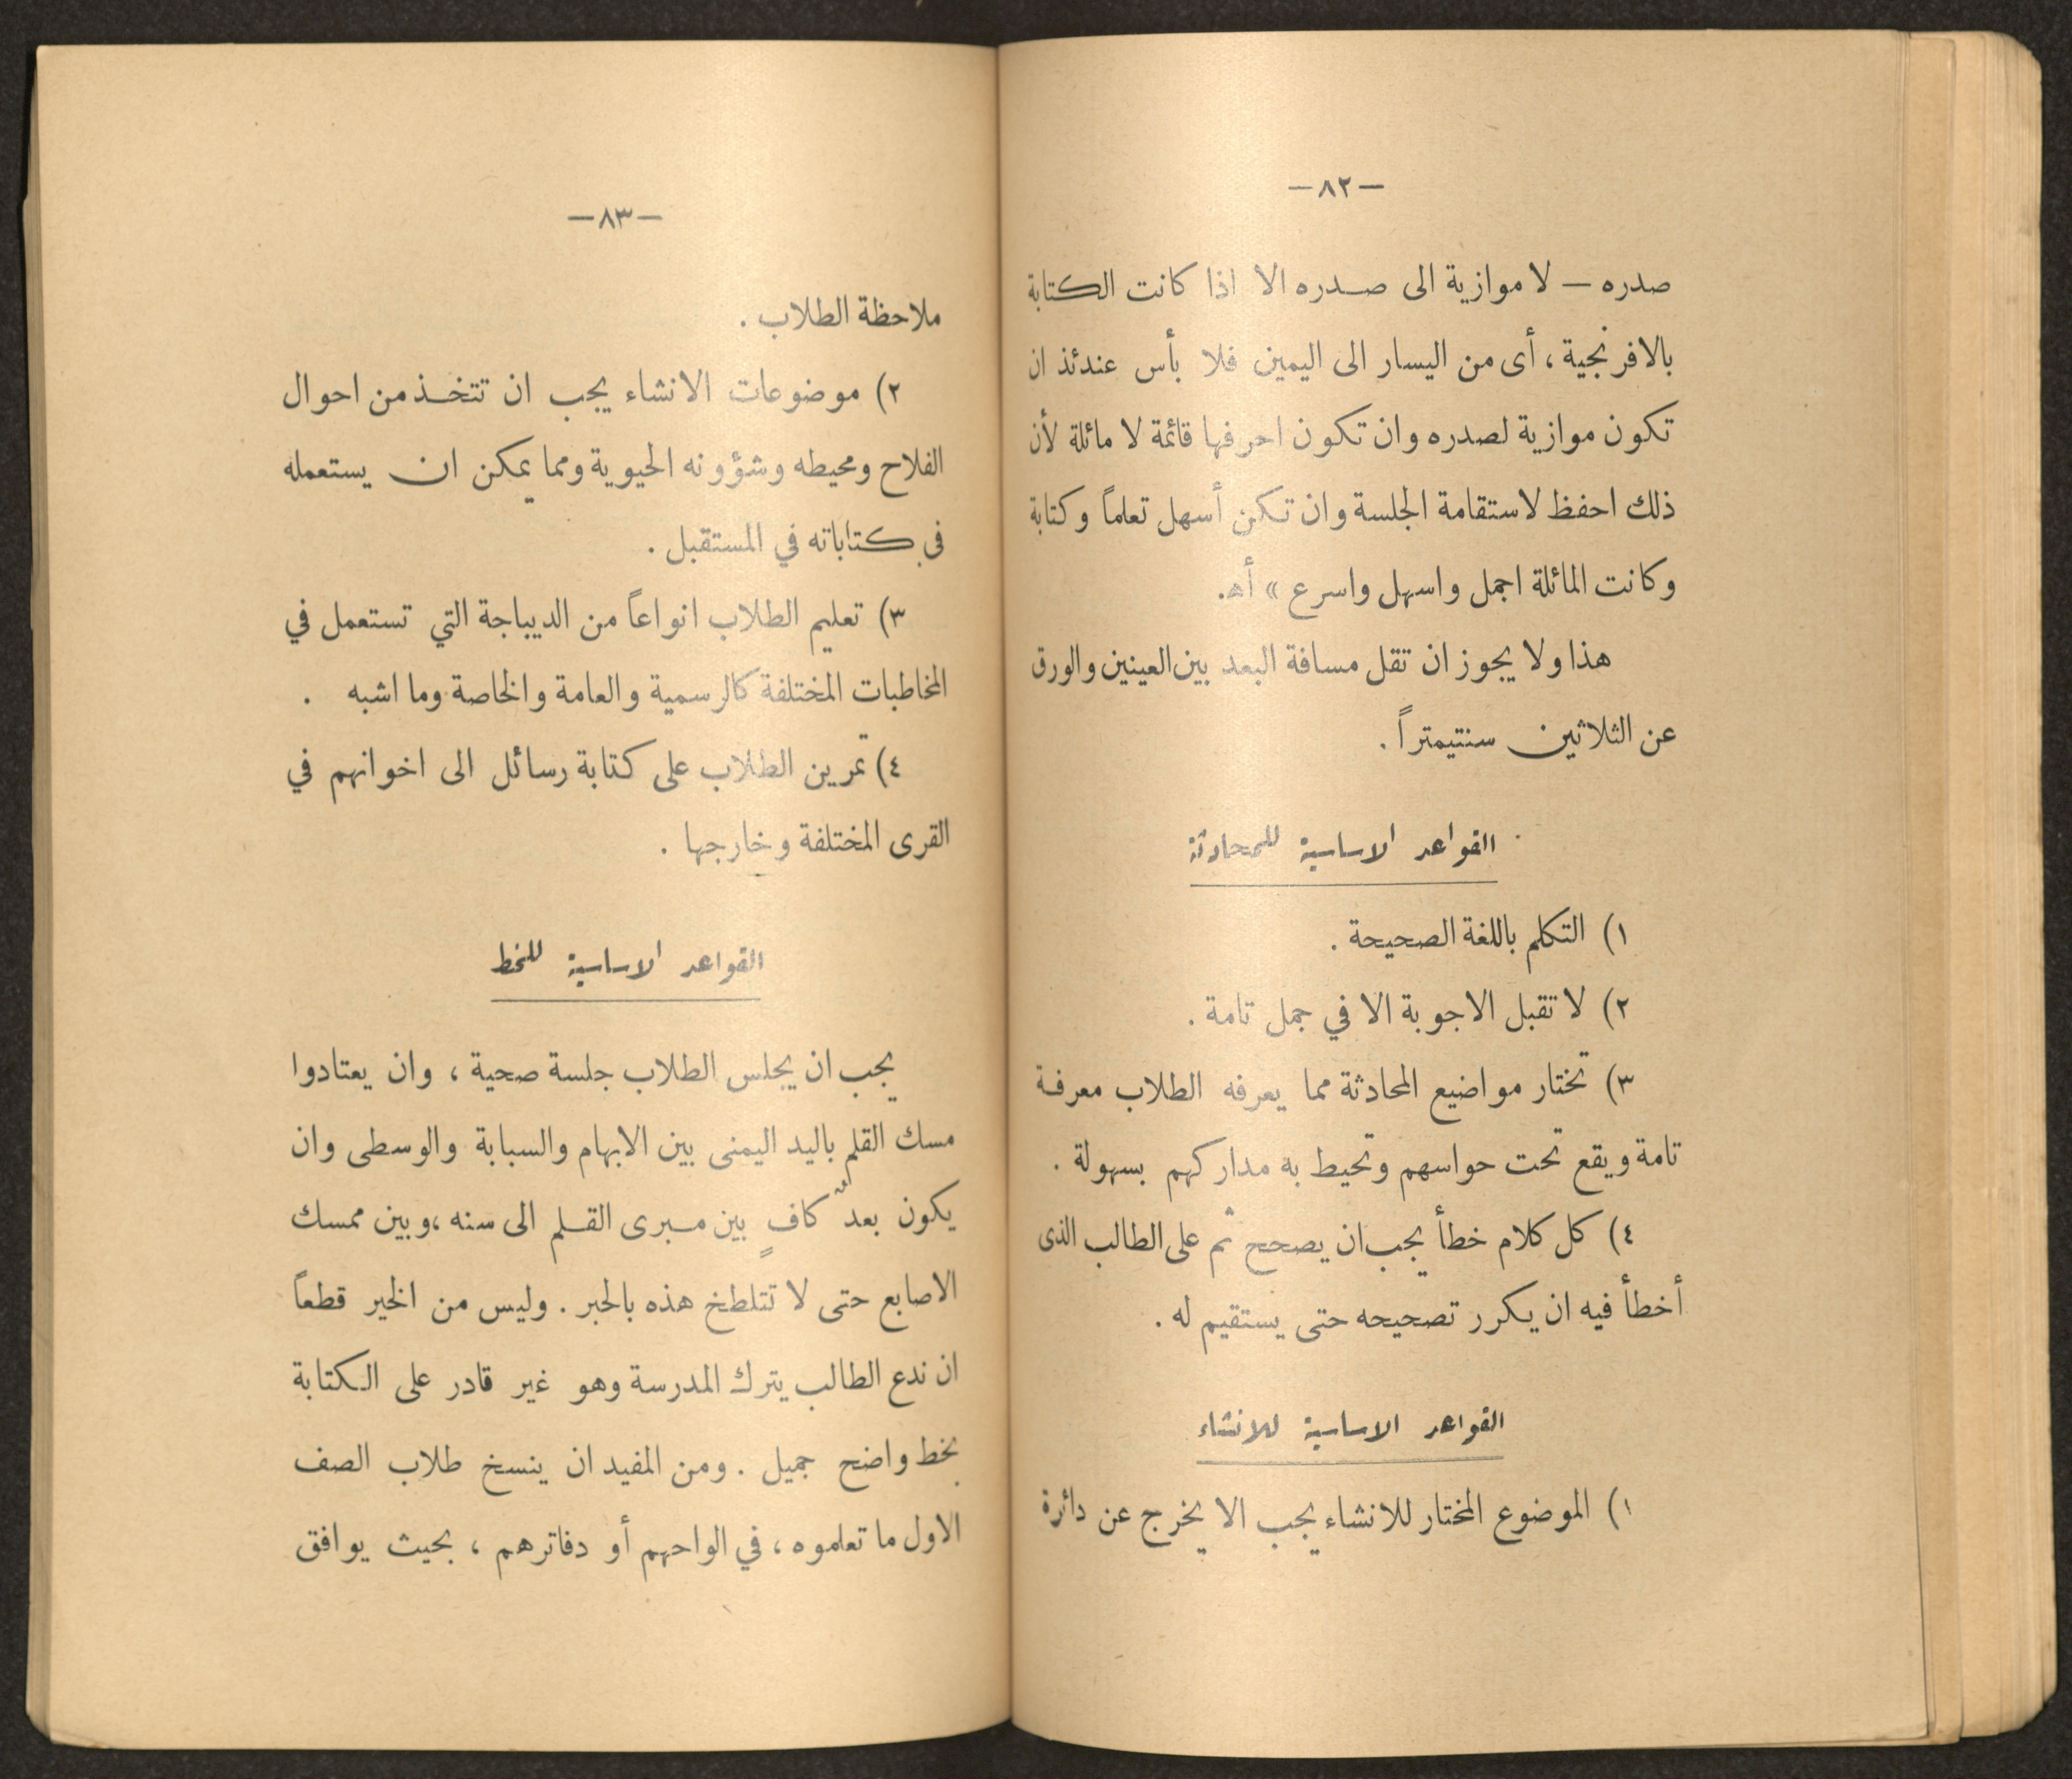 —٨٢—
صدره — لا موازية الى صدره الا اذا كانت الكتابة
بالافرنجية ، أى من اليسار الى اليمين فلا بأس عندئذ ان
تكون موازية لصدره وان تكون احرفها قائمة لا مائلة لأن
ذلك احفظ لاستقامة الجلسة وان تكن أسهل تعلماً وكتابة
وكانت المائلة اجمل واسهل واسرع » أه.
هذا ولا يجوز ان تقل مسافة البعد بين العينين والورق
عن الثلاثين سنتيمتراً .
القواعد الاساسية للمحادثة
١) التكلم باللغة الصحيحة .
٢) لا تقبل الاجوبة الا في جمل تامة .
٣) تختار مواضيع المحادثة مما يعرفه الطلاب معرفة
تامة ويقع تحت حواسهم وتحيط به مداركهم بسهولة .
٤) كل كلام خطأ يجب ان يصحح ثم على الطالب الذى
أخطأ فيه ان يكرر تصحيحه حتى يستقيم له .
القواعد الاساسية للانشاء
١) الموضوع المختار للانشاء يجب الا يخرج عن دائرة
—٨٣—
ملاحظة الطلاب .
٢) موضوعات الانشاء يجب ان تتخذ من احوال
الفلاح ومحيطه وشؤونه الحيوية ومما يمكن ان يستعمله
في كتاباته في المستقبل .
٣) تعليم الطلاب انواعاً من الديباجة التي تستعمل في
المخاطبات المختلفة كالرسمية والعامة والخاصة وما اشبه .
٤) تمرين الطلاب على كتابة رسائل الى اخوانهم في
القرى المختلفة وخارجها .
القواعد الاساسية للخط
يجب ان يجلس الطلاب جلسة صحية ، وان يعتادوا
مسك القلم باليد اليمنى بين الابهام والسبابة والوسطى وان
يكون بعدٌ كافٍ بين مبرى القلم الى سنه ، وبين ممسك
الاصابع حتى لا تتلطخ هذه بالحبر . وليس من الخير قطعاً
ان ندع الطالب يترك المدرسة وهو غير قادر على الكتابة
بخط واضح جميل . ومن المفيد ان ينسخ طلاب الصف
الاول ما تعلموه ، في الواحهم أو دفاترهم ، بحيث يوافق